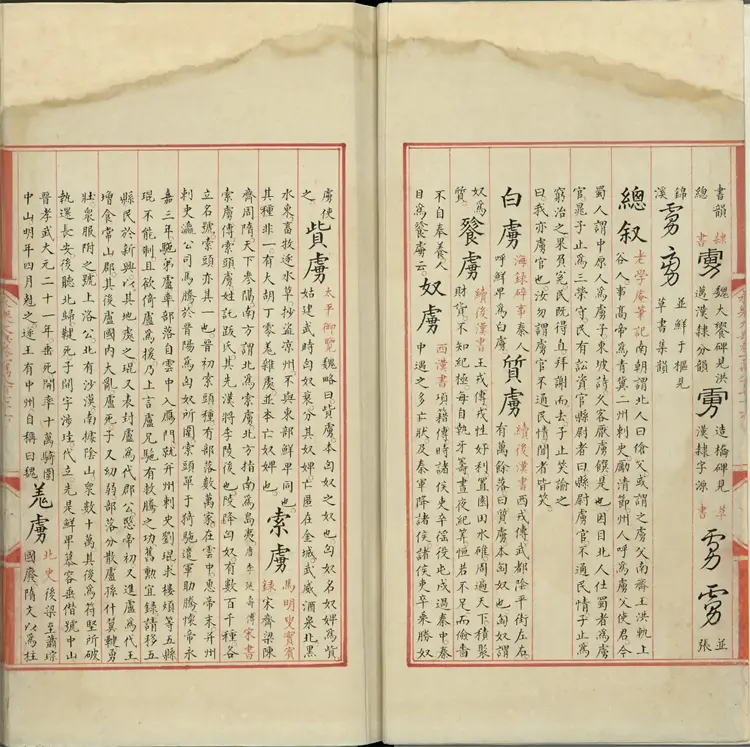 書韻　隸
總　書
虜
魏大饗碑見洪
邁漢隸分韻
虜
造橋碑見　草
漢隸字源　書
虜　虜
並
張
錦
溪
虜　虜
並鮮于樞見
草書集韻
總叙
老學庵筆記南朝謂北人曰傖父或謂之虜父南齊王洪軌上
谷人事高帝為青冀二州刺史勵清節州人呼為虜父使君今
蜀人謂中原人為虜子東坡詩久客厭虜饌是也因目北人仕蜀者為虜
官晁子止為三榮守民有訟資官縣尉者曰縣尉虜官不通民情子止為
窮治之果負冤民既得直拜謝而去子止笑諭之
曰我亦虜官也汝勿謂虜官不通民情聞者皆笑
白虜
海録碎事秦人
呼鮮卑為白虜
質虜
續後漢書西戎傳武都陰平街左右
有萬餘落曰質虜本匈奴也匈奴謂
奴為
質
饕虜
續後漢書王戎傳戎性好利置園田水碓周遍天下積聚
財貨不知紀極每自執牙籌晝夜紀筭恒若不足而儉嗇
不自奉養人
目為饕虜云
奴虜
西漢書項籍傳時諸侯吏卒徭役屯戍過秦中秦
中遇之多亡狀及秦軍降諸侯諸侯吏卒乘勝奴
虜使
之
貲虜
太平御覽魏略曰貲虜本匈奴之奴也匈奴名奴婢為貲
始建武時匈奴衰分其奴婢亡匿在金城武威酒泉北黑
水東畜牧逐水草抄盜凉州不與東部鮮卑同也
其種非一有大胡丁零羌雜處並本亡奴婢也
索虜
馬明叟實賓
録宋齊梁陳
齊周隋天下參隅南方謂北為索虜北方指南為島夷唐李延壽傳宋書
索虜傳索頭虜姓託跋氏其先漢將李陵後也陵降匈奴有數百千種各
立名號索頭亦其一也晉初索頭種有部落數萬家在雲中惠帝末并州
刺史瀛公司馬騰於晉陽為匈奴所圍索頭單于猗㐌遣軍助騰懷帝永
嘉三年㐌弟盧率部落自雲中入鴈門就并州刺史劉琨求樓煩等五縣
琨不能制且欲倚盧為援乃上言盧兄㐌有救騰之功舊勲宜録請移五
縣民於新興以其地處之琨又表封盧為代郡公愍帝初又進盧為代王
增食常山郡其後盧國内大亂盧死子又幼弱部落分散盧孫什翼鞬勇
壯衆服附之號上洛公北有沙漠南據陰山衆數十萬其後為苻堅所破
執還長安後聽北歸鞬死子開字涉珪代立先是鮮卑慕容垂僭號中山
晉孝武太元二十一年垂死開率十萬騎圍
中山明年四月剋之遂王有中州自稱曰魏
羗虜
北史後梁至蕭琮
國廢隋文以為柱